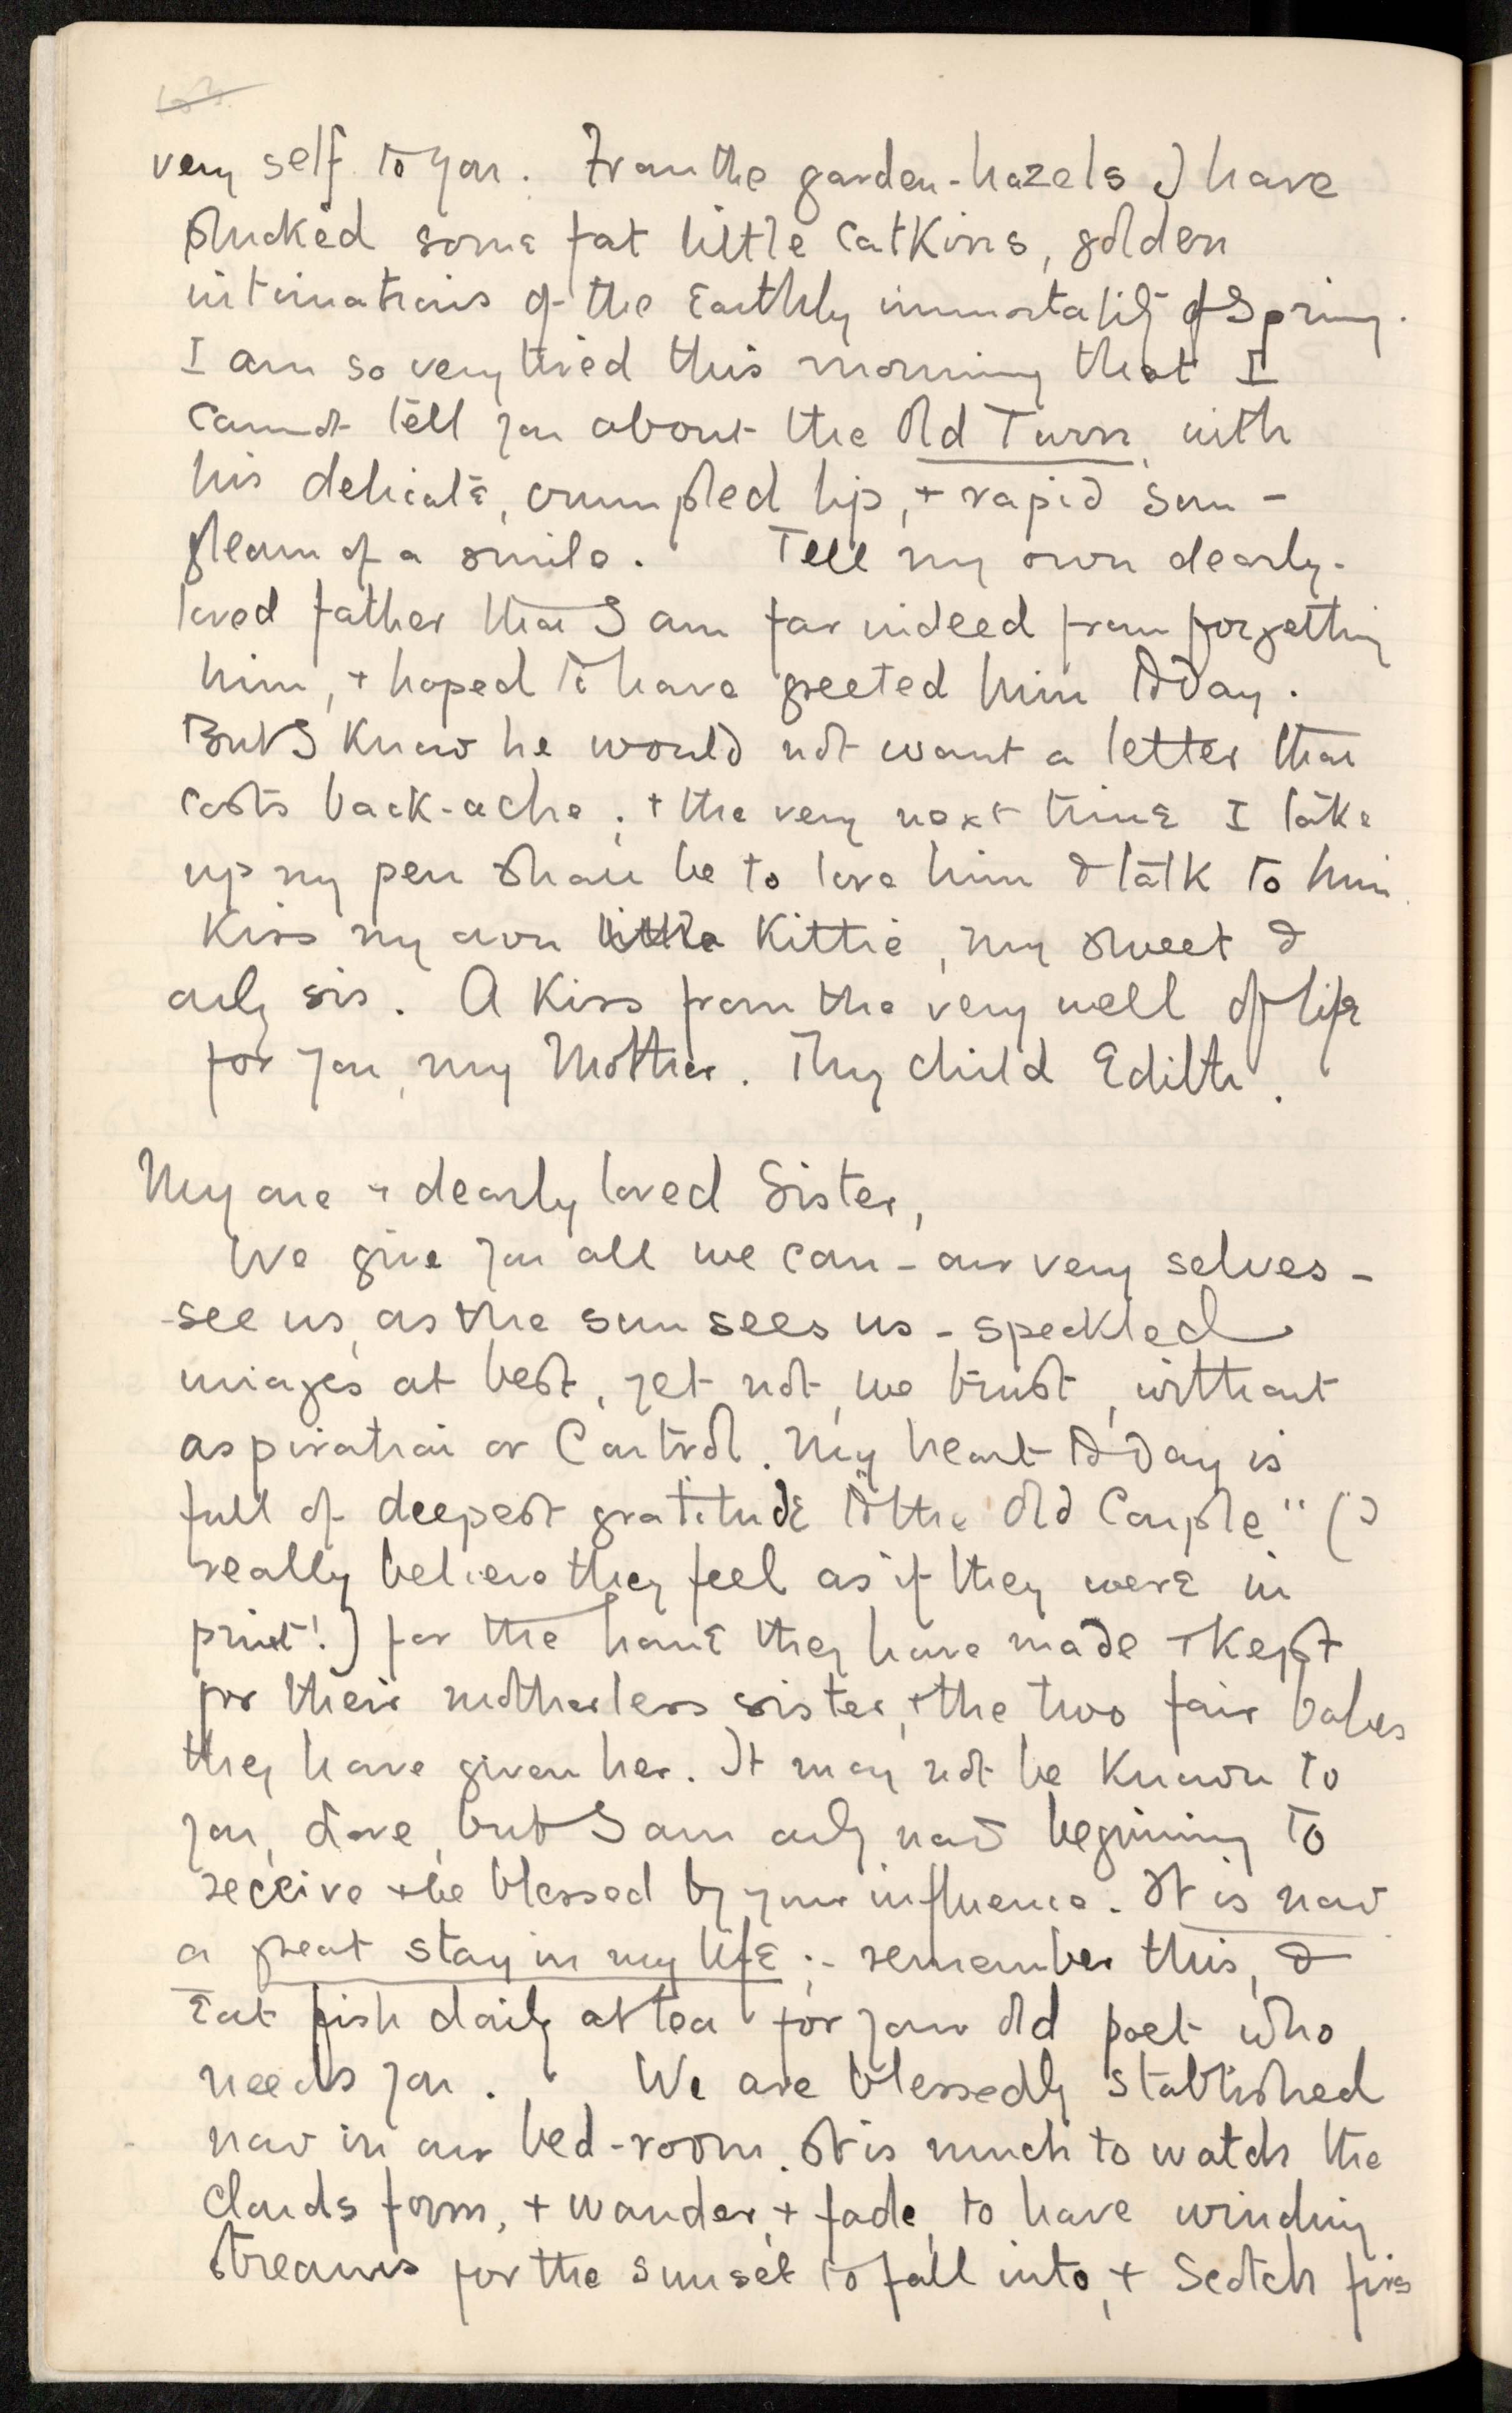 very self to you. From the garden-hazels I have
plucked some fat little catkins, golden
intimations of the earthly immortality of Spring.
I am so very tired this morning that I
cannot tell you about the Old Turn, with
his delicate, crumpled lip, + rapid sun-
gleam of a smile. Tell my own dearly-
loved father that I am far indeed from forgetting
him, + hoped to have greeted him today.
But I know he would not want a letter that
costs back-ache; + the very next time I take
up my pen shall be to love him & talk to him.
Kiss my own little Kittie, my sweet &
only sis. A Kiss from the very well of life
for you, my Mother. Thy child Edith.
My one + dearly loved Sister,
We give you all we can - our very selves -
-see us, as the sun sees us - speckled
images at best, yet not, we trust, without
aspiration or Control. My heart today is
full of deepest gratitude to the "Old Couple" (I
really believe they feel as if they were in
print!) for the home they have made + kept
for their motherless sister, + the two fair babes
they have given her. It may not be known to
you, dove, but I am only now beginning to
receive + be blessed by your influence. It is now
a great stay in my life :- remember this, &
Eat fish daily at tea for your old poet who
needs you. We are blessedly stablished
now in our bed-room. It is much to watch the
Clouds form, + wander, + fade, to have winding
streams for the sunset to fall into, + Scotch firs